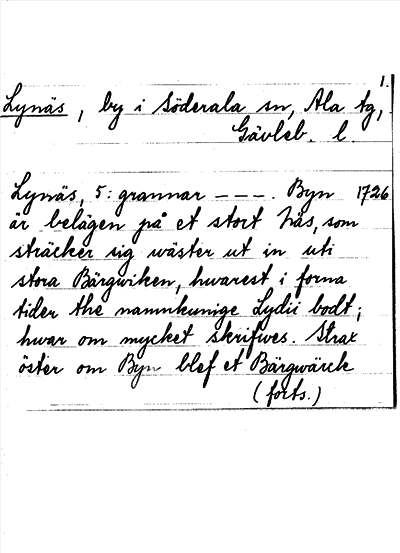 1.
Lynäs, by i Söderala sn, Ala tg,
Gävleb. l.
Lynäs, 5: grannar ---. Byn 1726
är belägen på et stort näs, som
sträcker sig wäster ut in uti
stora Bärgwiken, hwarest i forna
tider the namnkunige Lydii bodt;
hwar om mycket skrifwes. Strax
öster om Byn blef et Bärgwärck
(forts.)